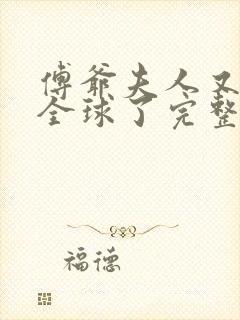 傅爷夫人又
全球了完整
福德